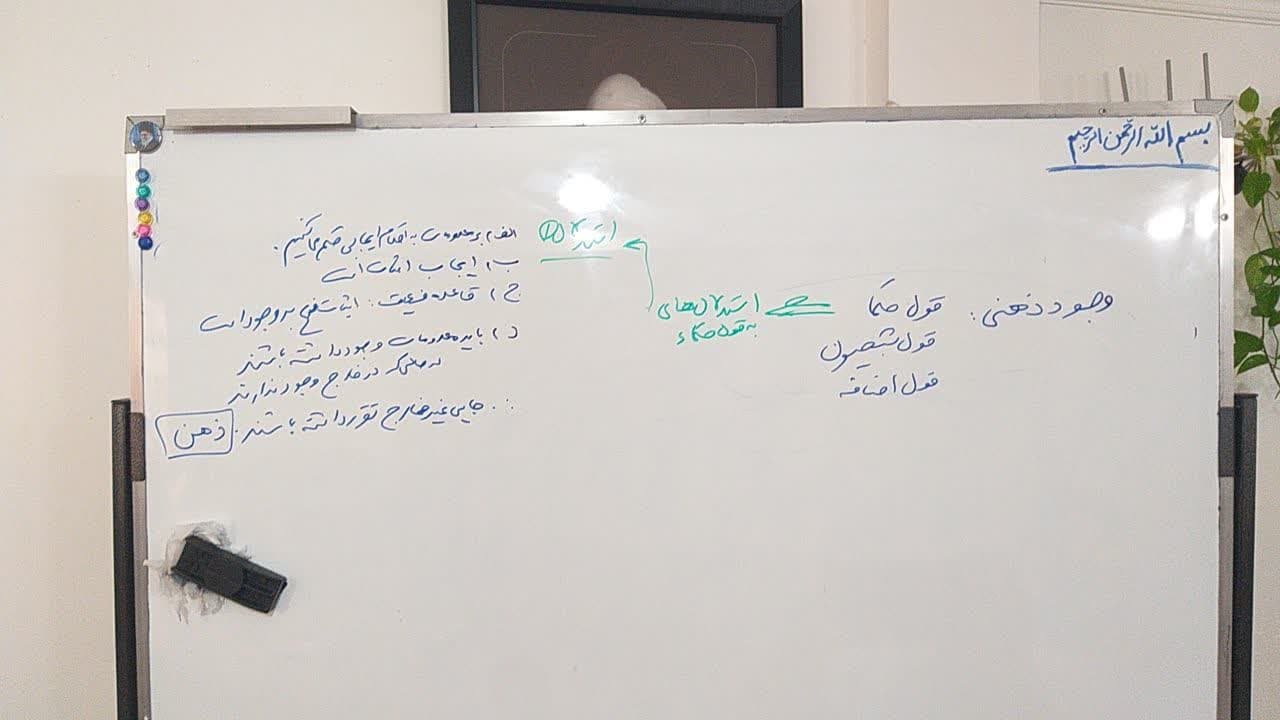 بسم الله الرحمن الرحیم
وجود ذهنی: قول حکما
قول شبحیون
قول اضافه
استدلال‌های
به قول حکماء
استدلال ①
الف) بر معدومات به احکام ایجابی حکم می‌کنیم.
ب) ایجاب اثبات است
ج) قاعده فرعیت: اثبات شیء فرع بر وجود است
د) باید معدومات وجود داشته باشند
در حالی که در خارج وجود ندارند
∴ جایی غیر خارج تقرر داشته باشند: ذهن